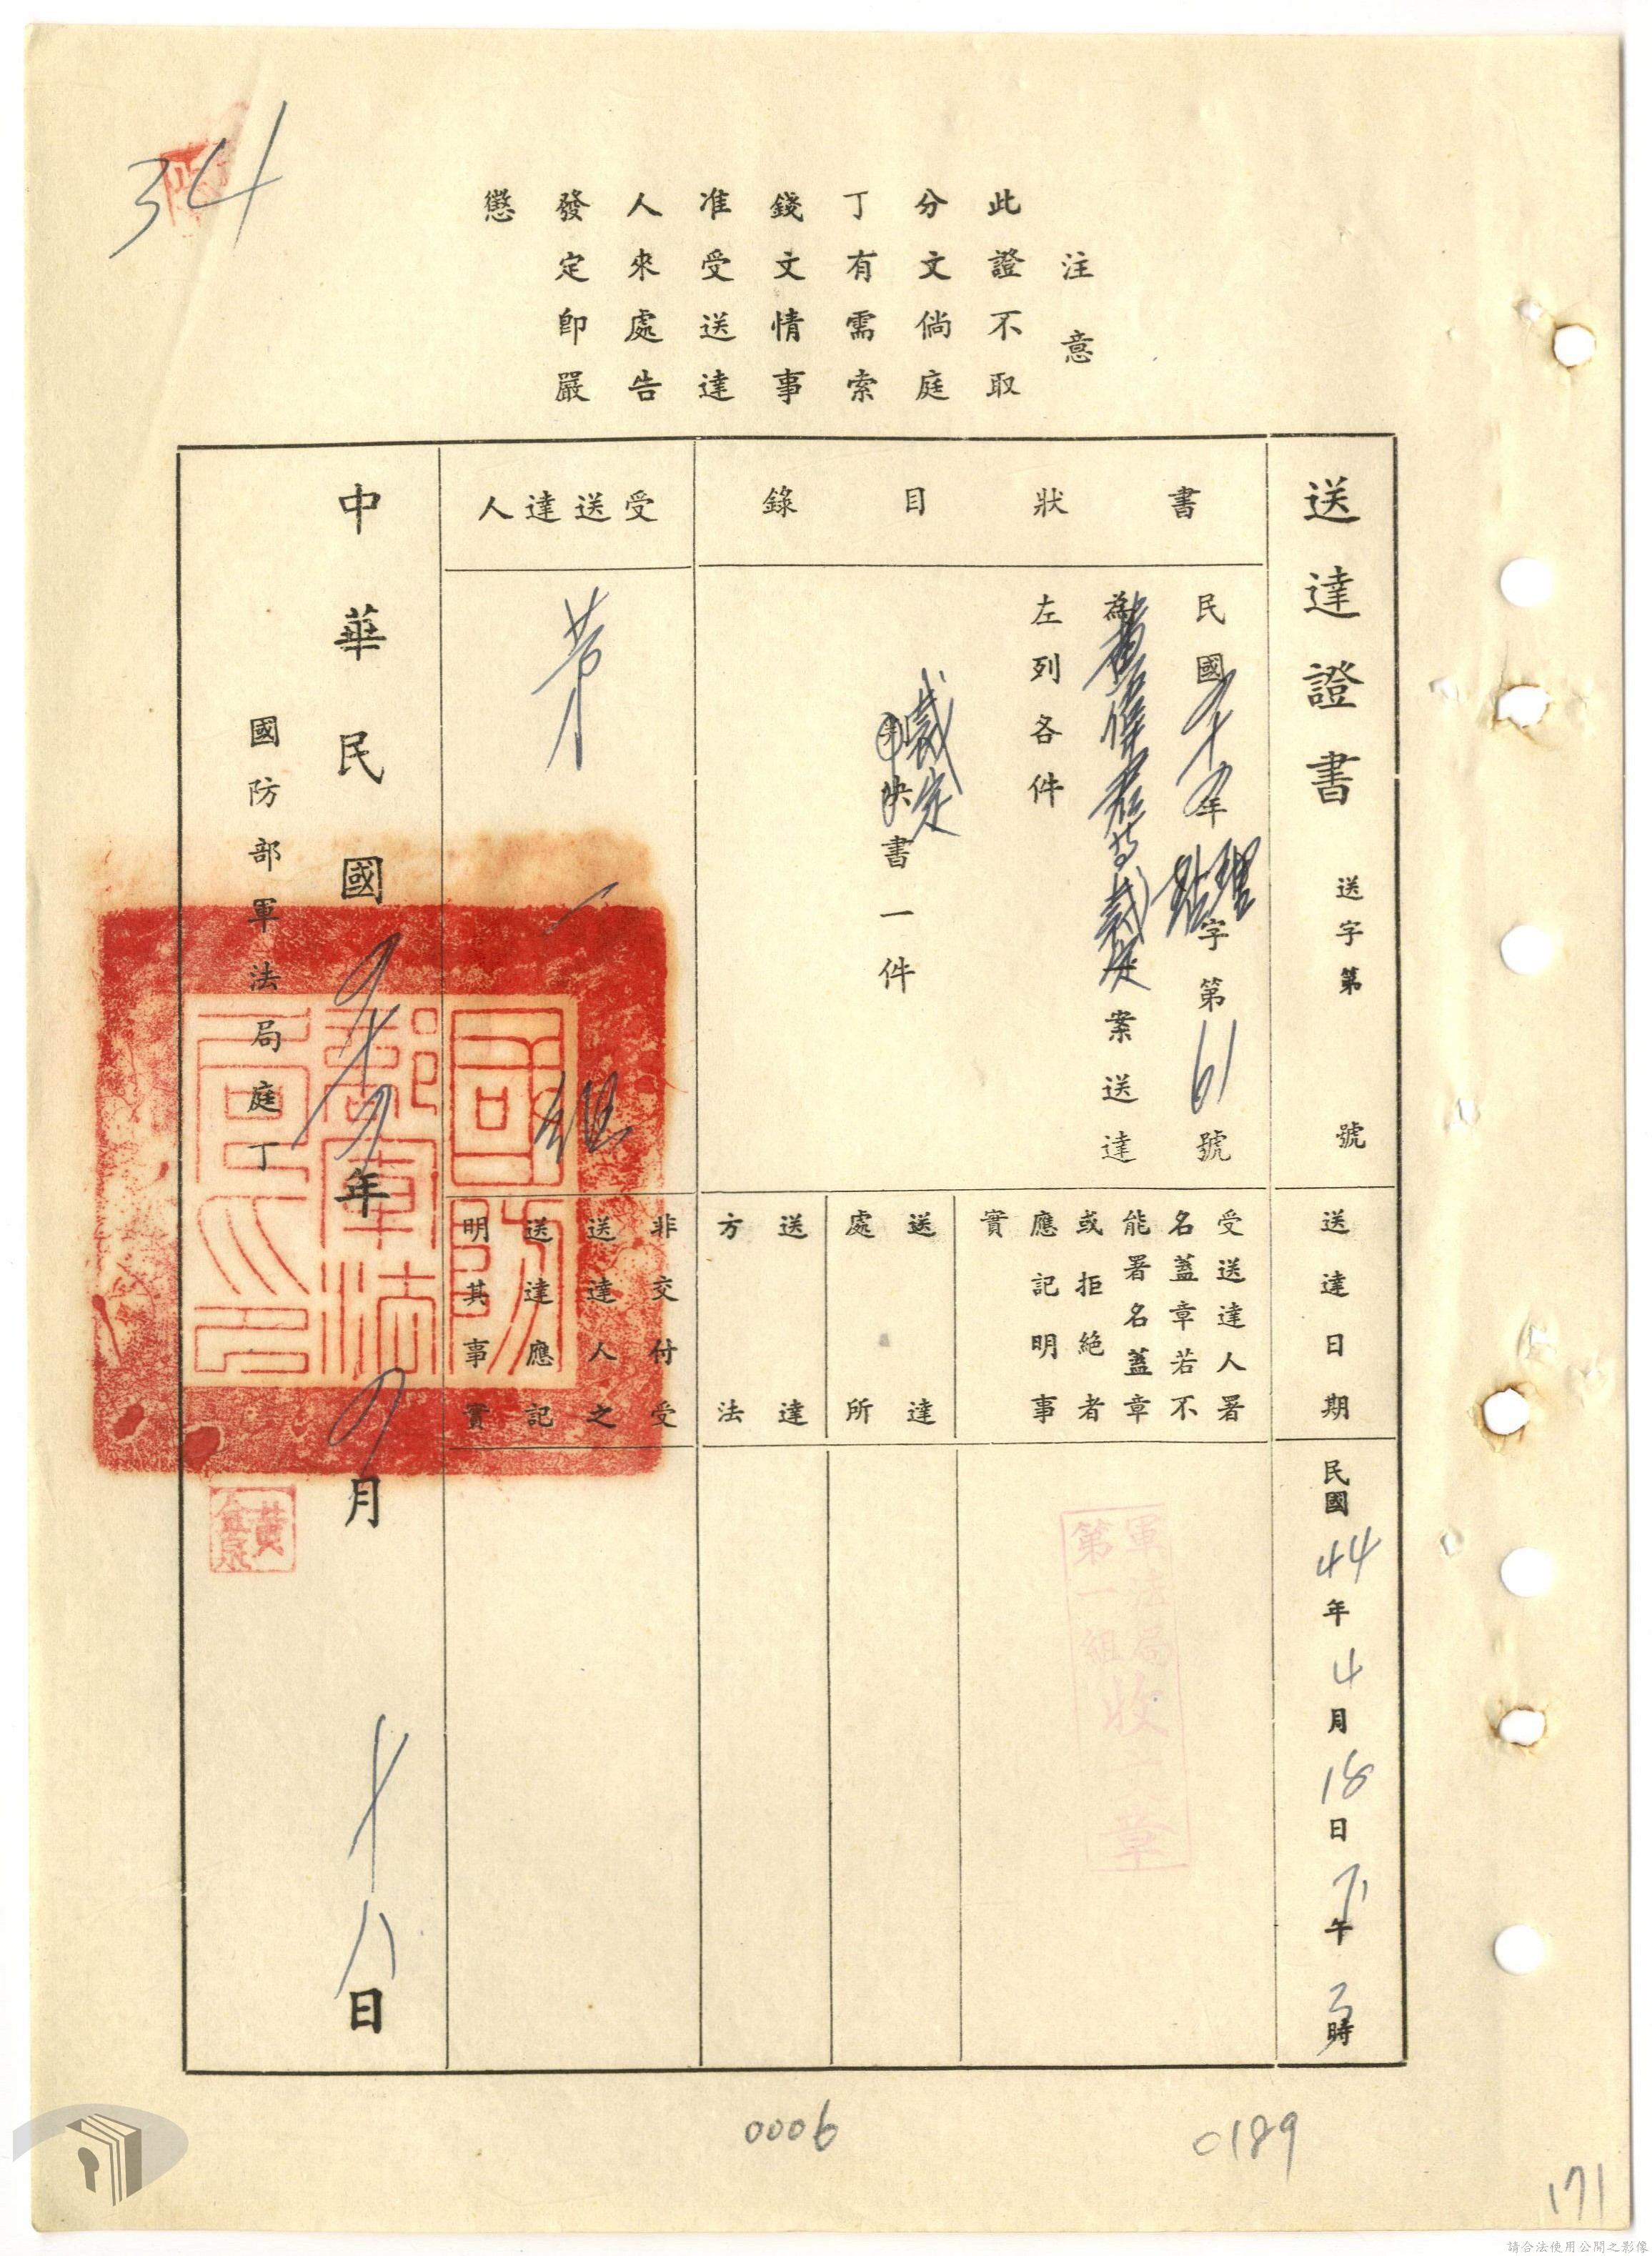 34
注意
此證不取
分文倘庭
丁有需索
錢文情事
准受送達
人來處告
發定即嚴
懲
送達證書 送字第 號
書狀目錄
民國四十四年 字第61號
為 裁定案送達
左列各件
裁定
判決書一件
受送達人
第一組
送達日期
民國44年4月18日下午3時
受送達人署
名蓋章若不
能署名蓋章
或拒絕者
應記明事
實
軍法局
第一組收文章
送達
處所
送達
方法
非交付受
送達人之
送達應記
明其事實
中華民國四十四年四月十八日
國防部軍法局庭丁
國防部軍法局印
黃金泉
0006
0189
171
請合法使用公開之影像